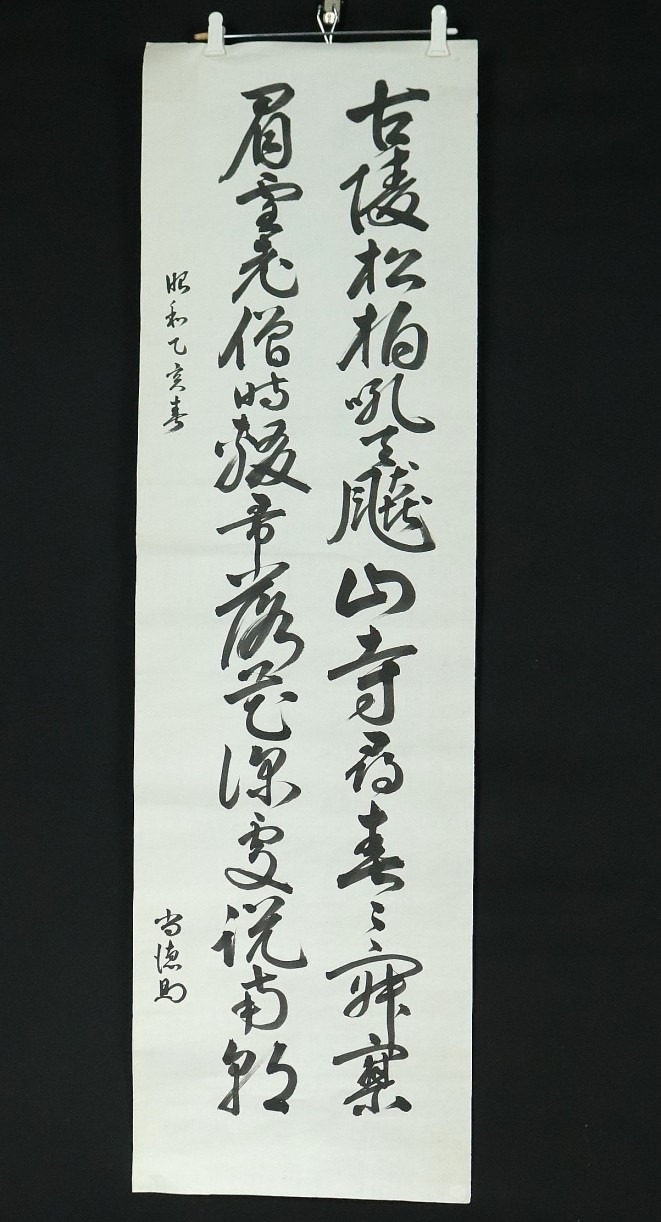 古陵松柏吼天飆山寺尋春々寂寥
眉雪老僧時輟帚落花深處説南朝
昭和乙亥春
尚徳